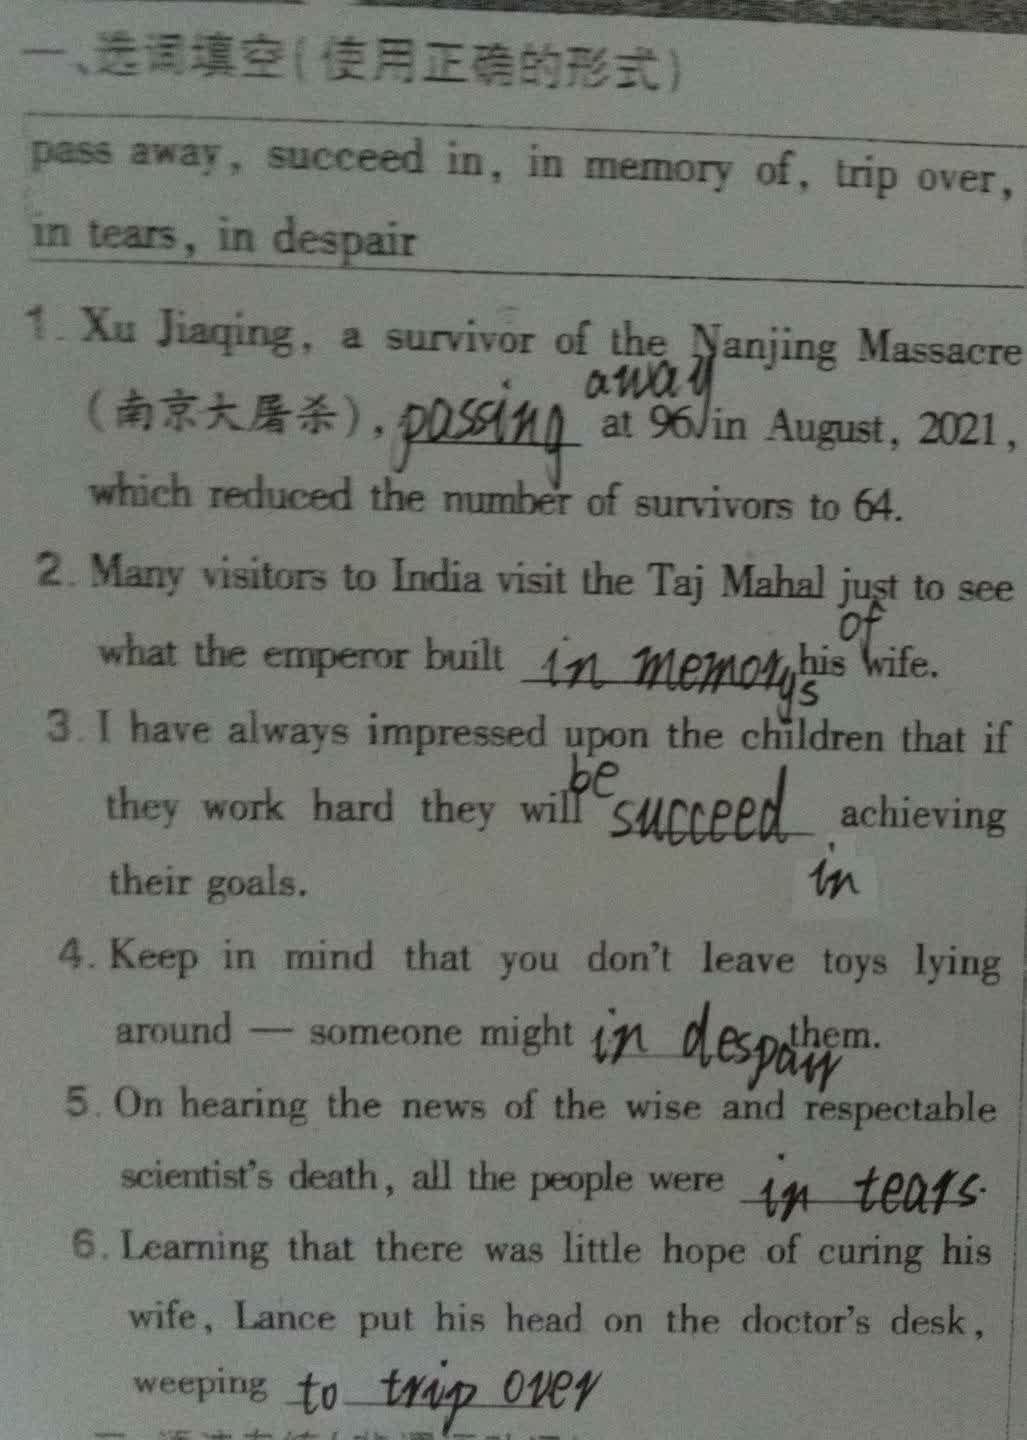 一、选词填空(使用正确的形式)
pass away, succeed in, in memory of, trip over,
in tears, in despair
1. Xu Jiaqing, a survivor of the Nanjing Massacre
away
(南京大屠杀), passing at 96 in August, 2021,
which reduced the number of survivors to 64.
2. Many visitors to India visit the Taj Mahal just to see
of
what the emperor built in memorys his wife.
3. I have always impressed upon the children that if
be
they work hard they will succeed achieving
in
their goals.
4. Keep in mind that you don't leave toys lying
around — someone might in despair them.
5. On hearing the news of the wise and respectable
scientist's death, all the people were in tears.
6. Learning that there was little hope of curing his
wife, Lance put his head on the doctor's desk,
weeping to trip over